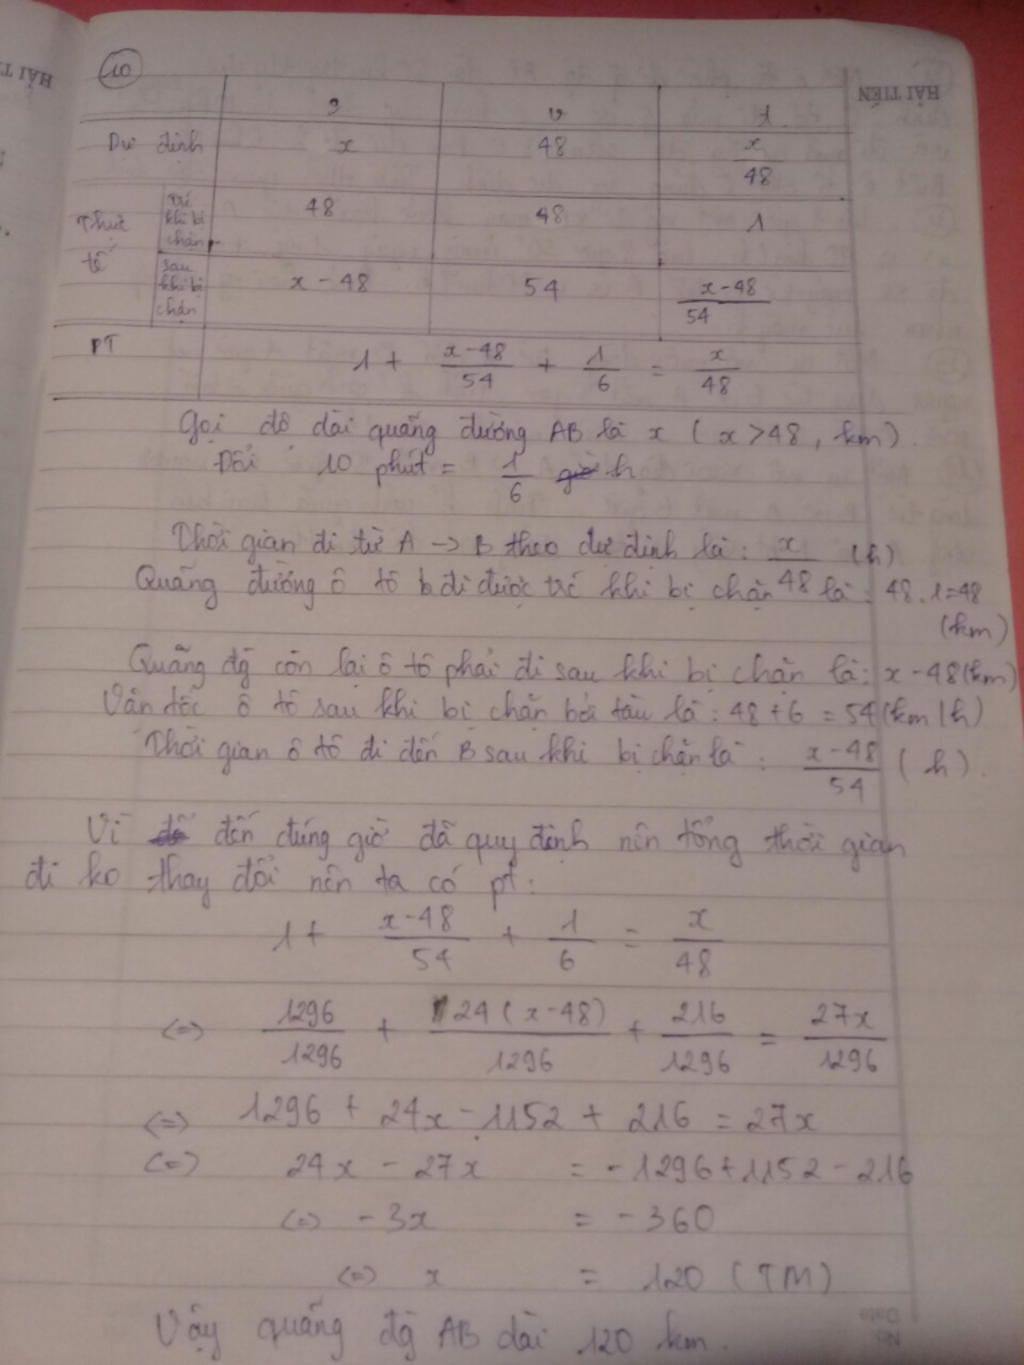 HẢI TIẾN
10
s v t
Dự định x 48 x/48
Thực tế trc khi bị chặn 48 48 1
sau khi bị chặn x - 48 54 x-48/54
PT 1 + x-48/54 + 1/6 = x/48
Gọi độ dài quãng đường AB là x ( x > 48 , km ) .
Đổi 10 phút = 1/6 h
Thời gian đi từ A -> B theo dự định là : x/48 (h)
Quãng đường ô tô đi được trc khi bị chặn là : 48.1=48
(km)
Quãng đg còn lại ô tô phải đi sau khi bị chặn là : x - 48 (km)
Vận tốc ô tô sau khi bị chặn bởi tàu là : 48 + 6 = 54 (km/h)
Thời gian ô tô đi đến B sau khi bị chặn là : x-48/54 ( h ) .
Vì đến đúng giờ đã quy định nên tổng thời gian
đi ko thay đổi nên ta có pt :
1 + x-48/54 + 1/6 = x/48
<=> 1296/1296 + 24(x-48)/1296 + 216/1296 = 27x/1296
<=> 1296 + 24x - 1152 + 216 = 27x
<=> 24x - 27x = -1296 + 1152 - 216
<=> -3x = -360
<=> x = 120 (TM)
Vậy quãng đg AB dài 120 km .